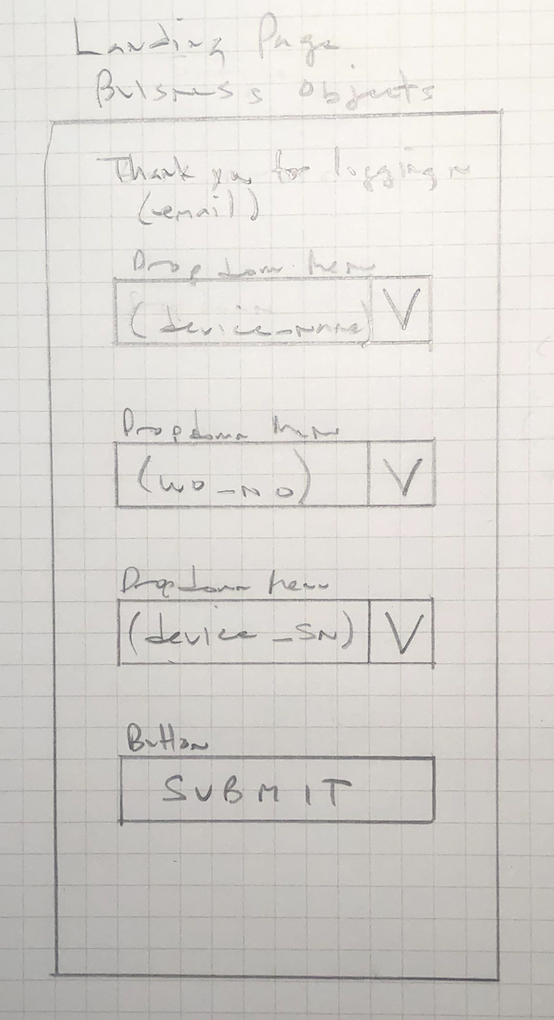 Landing Page
Buisness Objects
Thank you for logging in
(email)
Dropdown Menu
(device_name)
V
Dropdown Menu
(WO_NO)
V
Dropdown Menu
(device_SN)
V
Button
SUBMIT